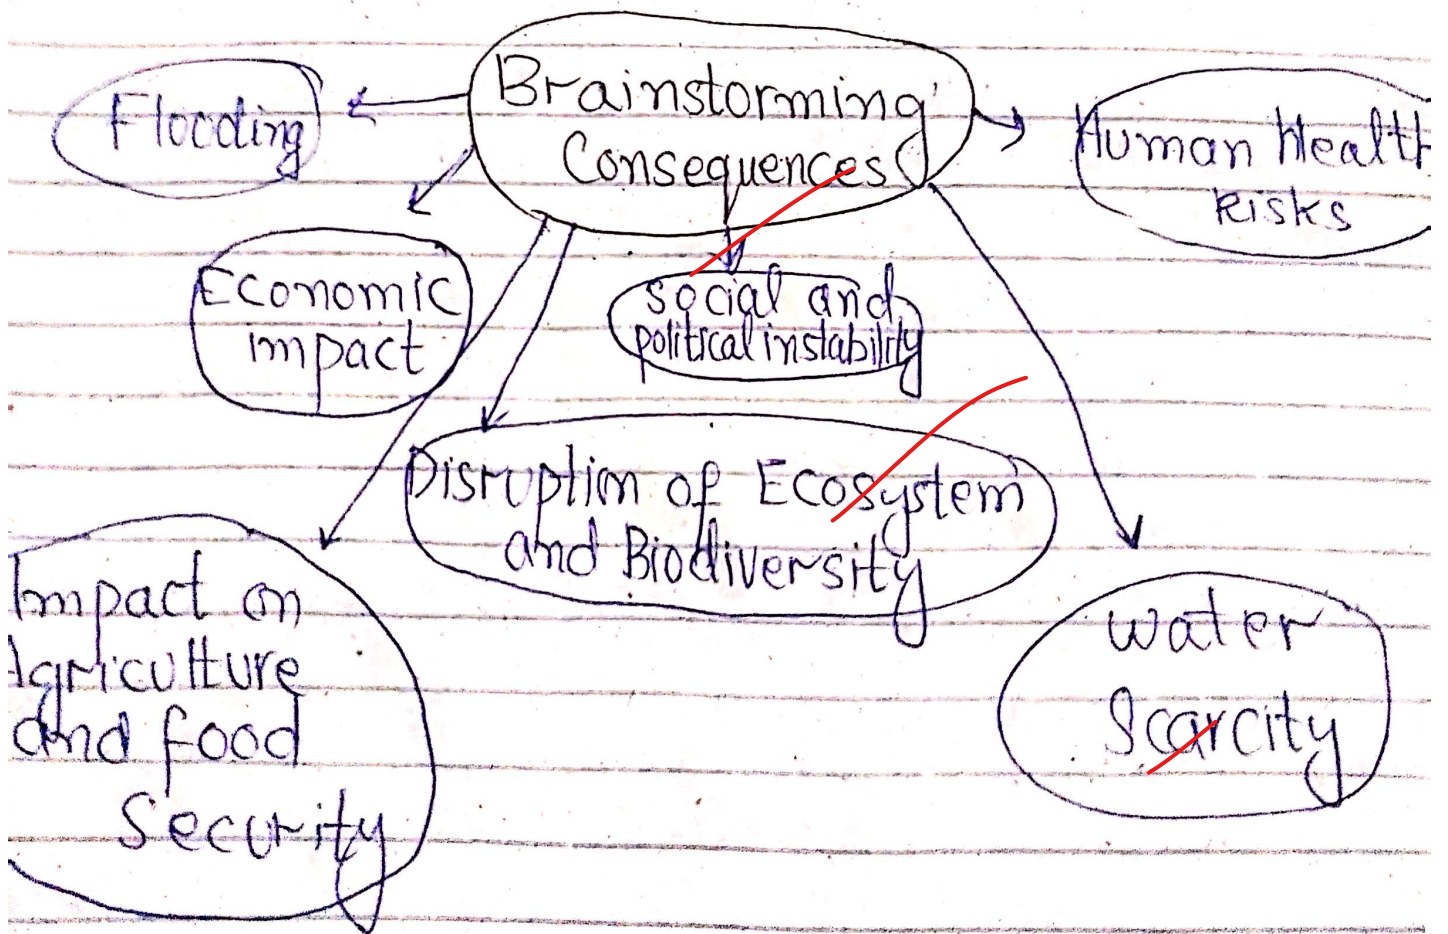 Brainstorming
Consequences
Flooding
Human Health
Risks
Economic
impact
social and
political instability
Disruption of Ecosystem
and Biodiversity
Impact on
Agriculture
and food
Security
water
Scarcity